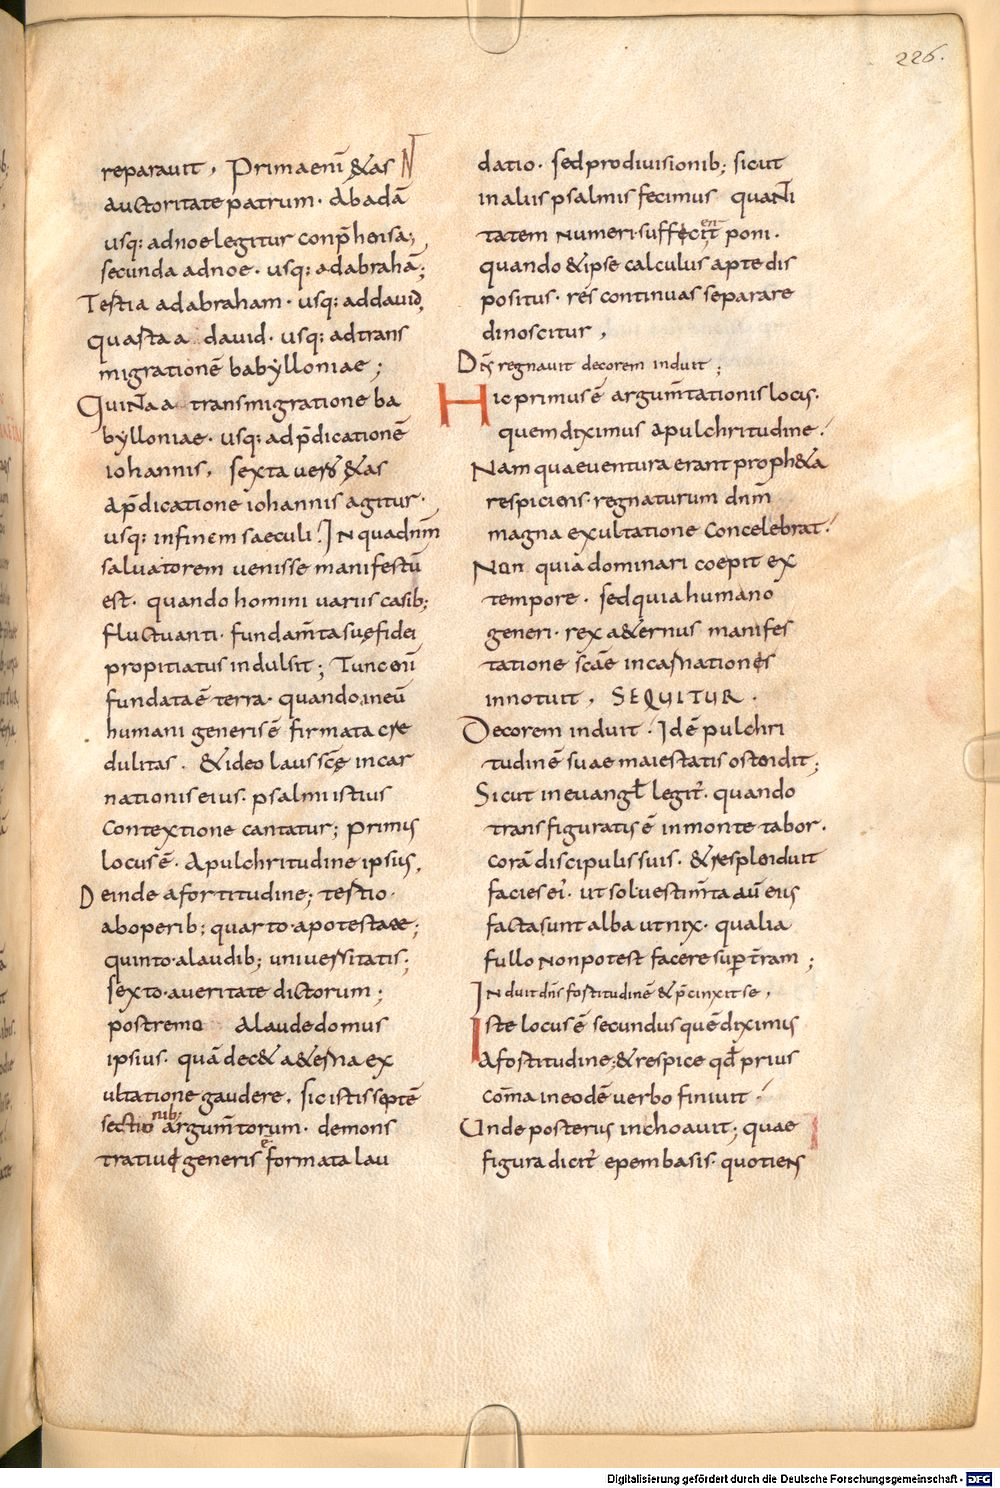 226.
reparauit, Prima enī &as N
auctoritate patrum· Ab adā
usq: ad noe legitur conp̄hensa;
secunda ad noe· usq: ad abrahā;
Tertia ad abraham· usq: ad dauid,
quarta a dauid· usq: ad trans
migrationē babylloniae;
Quinta a transmigratione ba
bylloniae· usq: ad p̄dicationē
iohannis, sexta uero &as
a p̄dicatione iohannis agitur·
usq: in finem saeculi! In qua dn̄m
saluatorem uenisse manifestū
est· quando homini uariis casib;
fluctuanti· fundam̄ta suę fidei
propitiatus indulsit; Tunc enī
fundata ē terra· quando in eū
humani generis ē firmata cre
dulitas· & ideo laus scę incar
nationis eius· psalmi istius
contextione cantatur; primus
locus ē· A pulchritudine ipsius,
Deinde a fortitudine; tertio·
ab operib; quarto· a potestate;
quinto· a laudib; uniuersitatis;
sexto· a ueritate dictorum;
postremo a laude domus
ipsius· quā dec& a&erna ex
ultatione gaudere, sic istis septē
sectio nib; argum̄torum· demons
tratiui generis e formata lau
datio· sed pro diuisionib; sicut
in aliis psalmis fecimus quanti
tatem numeri· sufficit en poni·
quando & ipse calculus apte dis
positus· res continuas separare
dinoscitur,
Dn̄s regnauit decorem induit;
Hic primus ē argum̄tationis locus·
quem diximus a pulchritudine!
Nam quae uentura erant proph&a
respiciens· regnaturum dn̄m
magna exultatione concelebrat!
Non quia dominari coepit ex
tempore· sed quia humano
generi· rex a&ernus manifes
tatione scāe incarnationis
innotuit, SEQUITUR·
Decorem induit! Id ē pulchri
tudinē suae maiestatis ostendit;
Sicut in euangl̄ legit̄· quando
transfiguratus ē in monte tabor·
corā discipulis suis· & resplenduit
facies ei᾽· ut sol uestim̄ta aū eius
facta sunt alba ut nix· qualia
fullo non potest facere sup t̄ram;
Induit dn̄s fortitudinē & p̄cinxit se,
Iste locus ē secundus quē diximus
A fortitudine; & respice qd̄ prius
com̄a in eodē uerbo finiuit!
Unde posterus inchoauit; quae
figura dicit̄ epembasis· quotiens
Digitalisierung gefördert durch die Deutsche Forschungsgemeinschaft - DFG